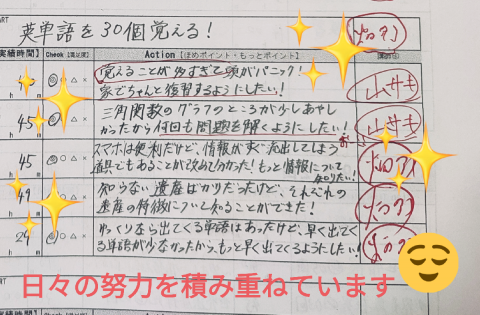 英単語を30個覚える!
実績時間】 Check【満足度】 Action【ほめポイント・もっとポイント】
覚えることが多すぎて頭がパニック!
家でちゃんと復習するようにしたい!
h m ◎ ○ △ ×
三角関数のグラフのところが少しあやし
かったから何回も問題を解くようにしたい!
45
h m
スマホは便利だけど、情報がすぐ流出してしまう
道具でもあることが改めて分かった!もっと情報について
知りたい!
45 ◎ ○ △ ×
h m
知らない遺産ばかりだったけど、それぞれの
遺産の特徴について知ることができた!
49
h m
ゆっくりなら出てくる単語はあったけど、早く出てく
る単語が少なかったからもっと早く出てくるようにしたい!
24 ○ △ ×
h m
日々の努力を積み重ねています